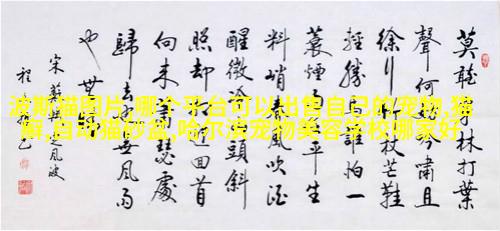 莫聽林打葉
聲何吟嘯且
徐行杖芒鞋
輕勝誰怕一
蓑煙平生
料峭春風吹酒
醒微冷頭斜
照卻相迎回首
向來瑟處
歸去無風雨
也無
宋蘇軾定風波
波斯猫图片,哪个平台可以出售自己的宠物,猫
癣,自动猫砂盆,哈尔滨宠物美容学校哪家好